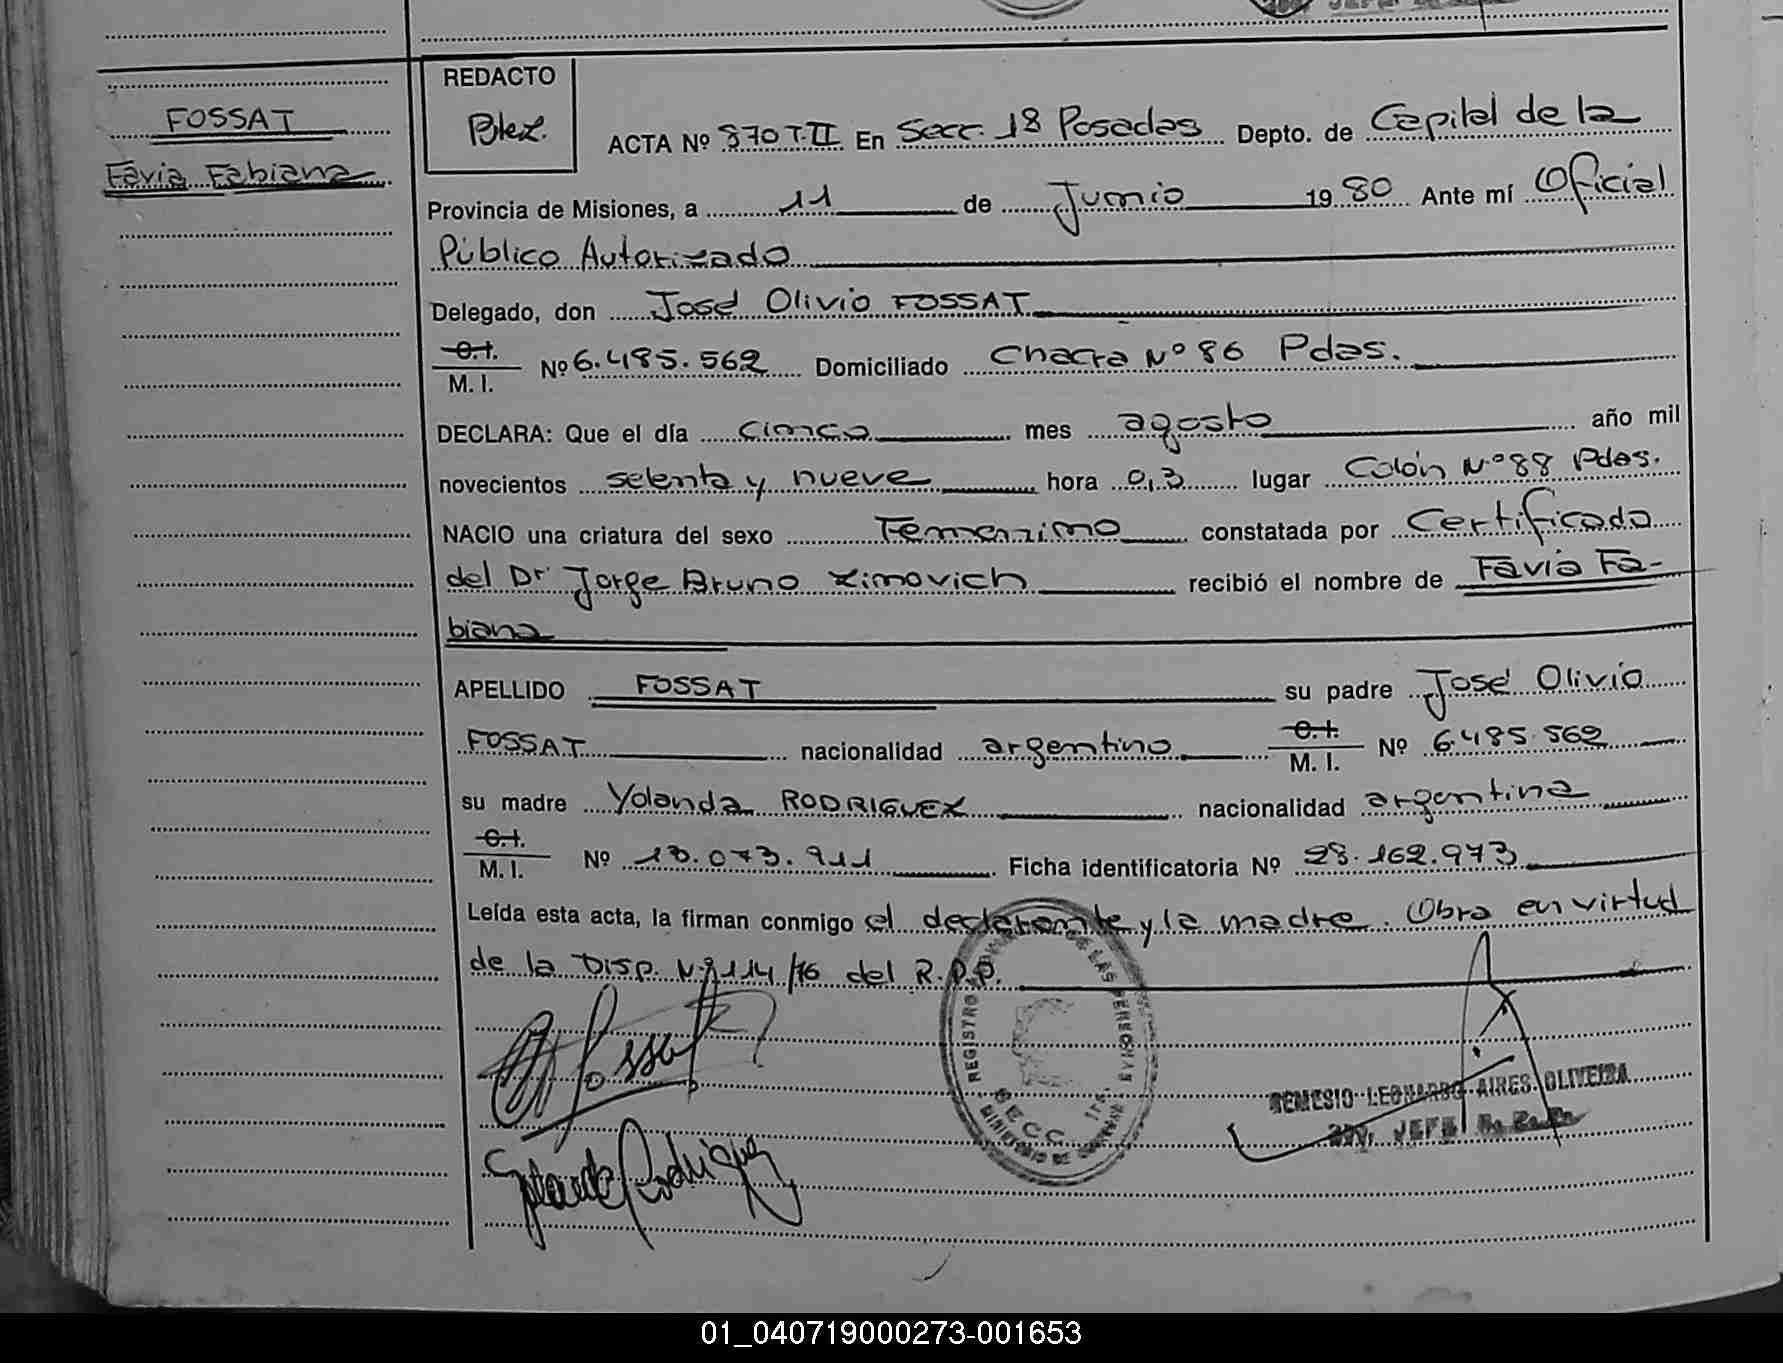 FOSSAT
Favia Fabiana
REDACTO
ACTA Nº 870 T.II En Secc. 18 Posadas Depto. de Capital de la
Provincia de Misiones, a 11 de Junio 1980 Ante mí Oficial
Público Autorizado
Delegado, don José Olivio FOSSAT
C.I.
M.I. Nº 6.485.562 Domiciliado Chacra Nº 86 Pdas.
DECLARA: Que el día cinco mes agosto año mil
novecientos setenta y nueve hora 0,3 lugar Colón Nº 88 Pdas.
NACIO una criatura del sexo Femenino constatada por Certificado
del Dr Jorge Bruno Zimovich recibió el nombre de Favia Fa-
biana
APELLIDO FOSSAT su padre José Olivio
FOSSAT nacionalidad argentino C.I. M.I. Nº 6.485.562
su madre Yolanda RODRIGUEZ nacionalidad argentina
C.I.
M.I. Nº 13.073.911 Ficha identificatoria Nº 28.162.973
Leída esta acta, la firman conmigo el declarante y la madre. Obra en virtud
de la Disp. Nº 114/76 del R.P.P.
Fossat
Rodriguez
REGISTRO DE LAS PERSONAS
SECC.
MINISTERIO DE
LEONARDO AIRES OLIVEIRA
JEFE
01_040719000273-001653